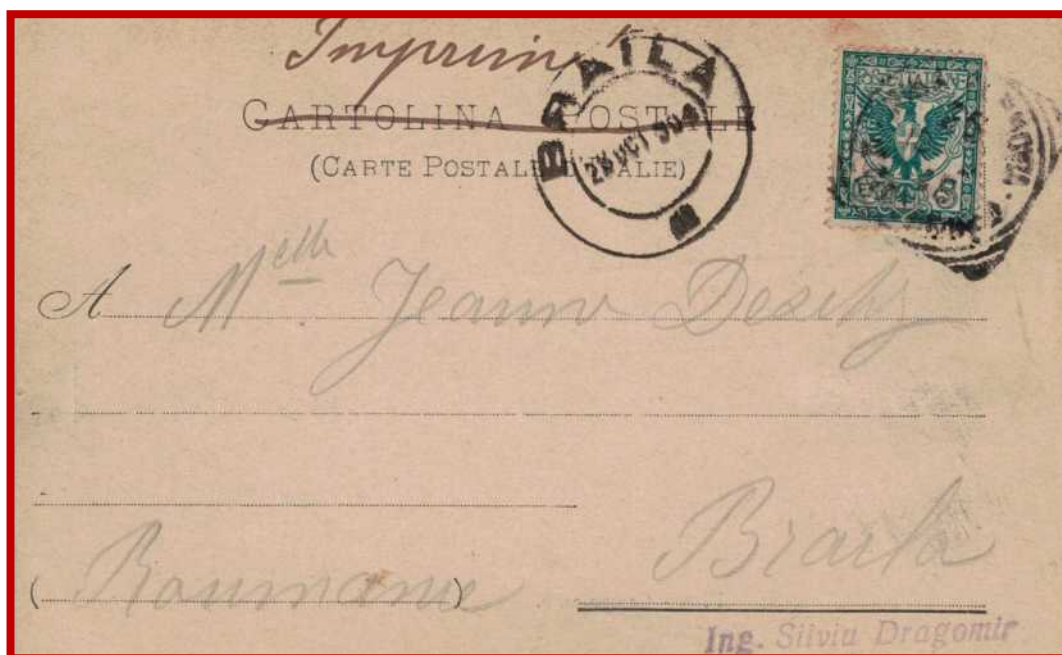 Imprimé
CARTOLINA POSTALE
(CARTE POSTALE D'ITALIE)
BRAILA
28 OCT 904
A Melle Jeanne
Braila
(Roumanie)
Ing. Silviu Dragomir